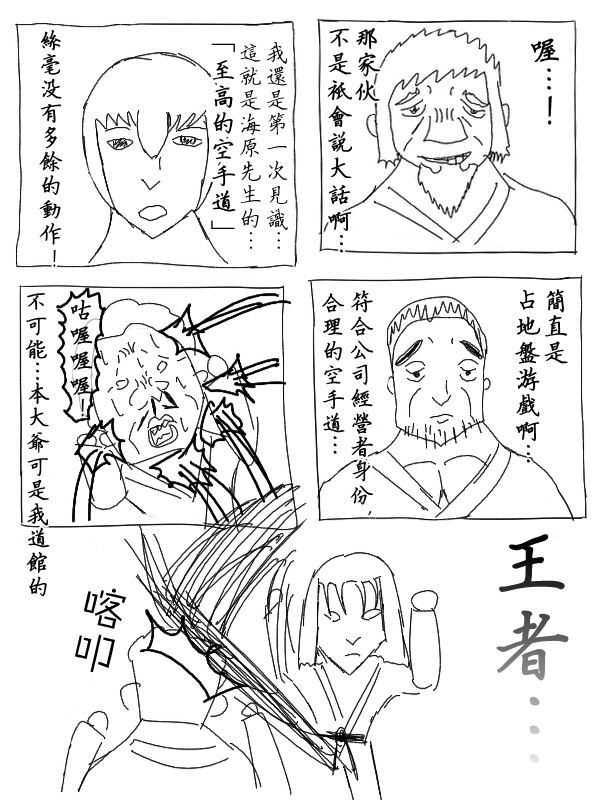 喔…！
那家伙
不是衹會説大話啊…
我還是第一次見識…
這就是海原先生的…
「至高的空手道」
絲毫没有多餘的動作！
簡直是
占地盤游戲啊…
符合公司經營者身份，
合理的空手道…
咕喔喔喔！
不可能…本大爺可是我道館的
王者…
喀叩